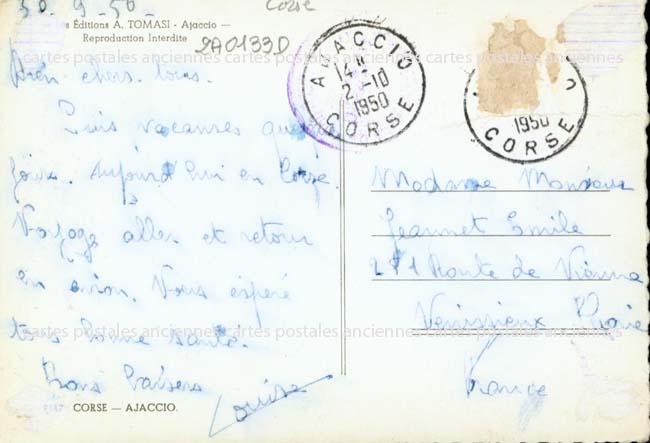 30-9-50-
Corse
s Éditions A. TOMASI - Ajaccio —
Reproduction Interdite
2A0133D
Bien chers tous.
Suis vacances
jours. Aujourd'hui en Corse.
Voyage aller et retour
en avion. Vous espère
tous bonne santé.
Bons baisers
Louise
CORSE — AJACCIO.
AJACCIO
14H
2-10
1950
CORSE
1950
CORSE
Madame Monsieur
Jeannet Emile
271 Route de Vienne
Venissieux Rhône
France
cartes postales anciennes cartes postales anciennes cartes postales anciennes
cartes postales anciennes cartes postales anciennes cartes postales anciennes